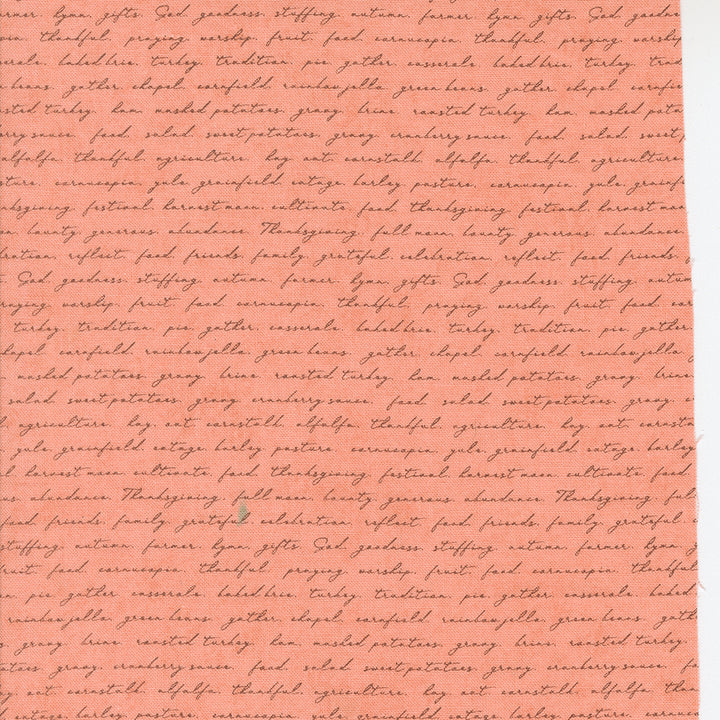 hymn, gifts, God, goodness, stuffing, autumn, farmer, hymn, gifts, God, goodn
thankful, praying worship, fruit, food, cornucopia, thankful, praying worship
baked brie, turkey, tradition, pie, gather, casserole, baked brie, turkey, trad
beans, gather, chapel, cornfield, rainbow jello, green beans, gather, chapel, cornfie
turkey, ham, mashed potatoes, gravy, brine, roasted turkey, ham, mashed pota
sauce, food, salad, sweet potatoes, gravy, cranberry sauce, food, salad, sweet
alfalfa, thankful, agriculture, hay, oat, cornstalk, alfalfa, thankful, agriculture,
cornucopia, yule, grainfield, barley, pasture, cornucopia, yule, grainf
festival, harvest moon, cultivate, food, thanksgiving, festival, harvest moon
bounty, generous, abundance, Thanksgiving, full moon, bounty, generous, abundance
reflect, food, friends, family, grateful, celebration, reflect, food, friends,
God, goodness, stuffing, autumn, farmer, hymn, gifts, God, goodness, stuffing, autum
praying worship, fruit, food, cornucopia, thankful, praying worship, fruit, food, cor
turkey, tradition, pie, gather, casserole, baked brie, turkey, tradition, pie, gather,
chapel, cornfield, rainbow jello, green beans, gather, chapel, cornfield, rainbow jello,
mashed potatoes, gravy, brine, roasted turkey, ham, mashed potatoes, gravy, brine
salad, sweet potatoes, gravy, cranberry sauce, food, salad, sweet potatoes, gravy,
agriculture, hay, oat, cornstalk, alfalfa, thankful, agriculture, hay, oat, cornst
yule, grainfield, barley, pasture, cornucopia, yule, grainfield, barley
harvest moon, cultivate, food, thanksgiving, festival, harvest moon, cultivate, food,
abundance, Thanksgiving, full moon, bounty, generous, abundance, Thanksgiving, ful
food, friends, family, grateful, celebration, reflect, food, friends, family, grateful,
stuffing, autumn, farmer, hymn, gifts, God, goodness, stuffing, autumn, farmer, hymn
fruit, food, cornucopia, thankful, praying worship, fruit, food, cornucopia, thankful
pie, gather, casserole, baked brie, turkey, tradition, pie, gather, casserole, baked
rainbow jello, green beans, gather, chapel, cornfield, rainbow jello, green beans, gath
gravy, brine, roasted turkey, ham, mashed potatoes, gravy, brine, roasted turkey,
gravy, cranberry sauce, food, salad, sweet potatoes, gravy, cranberry sauce,
oat, cornstalk, alfalfa, thankful, agriculture, hay, oat, cornstalk, alfalfa, than
barley, pasture, cornucopia, yule, grainfield, barley, pasture